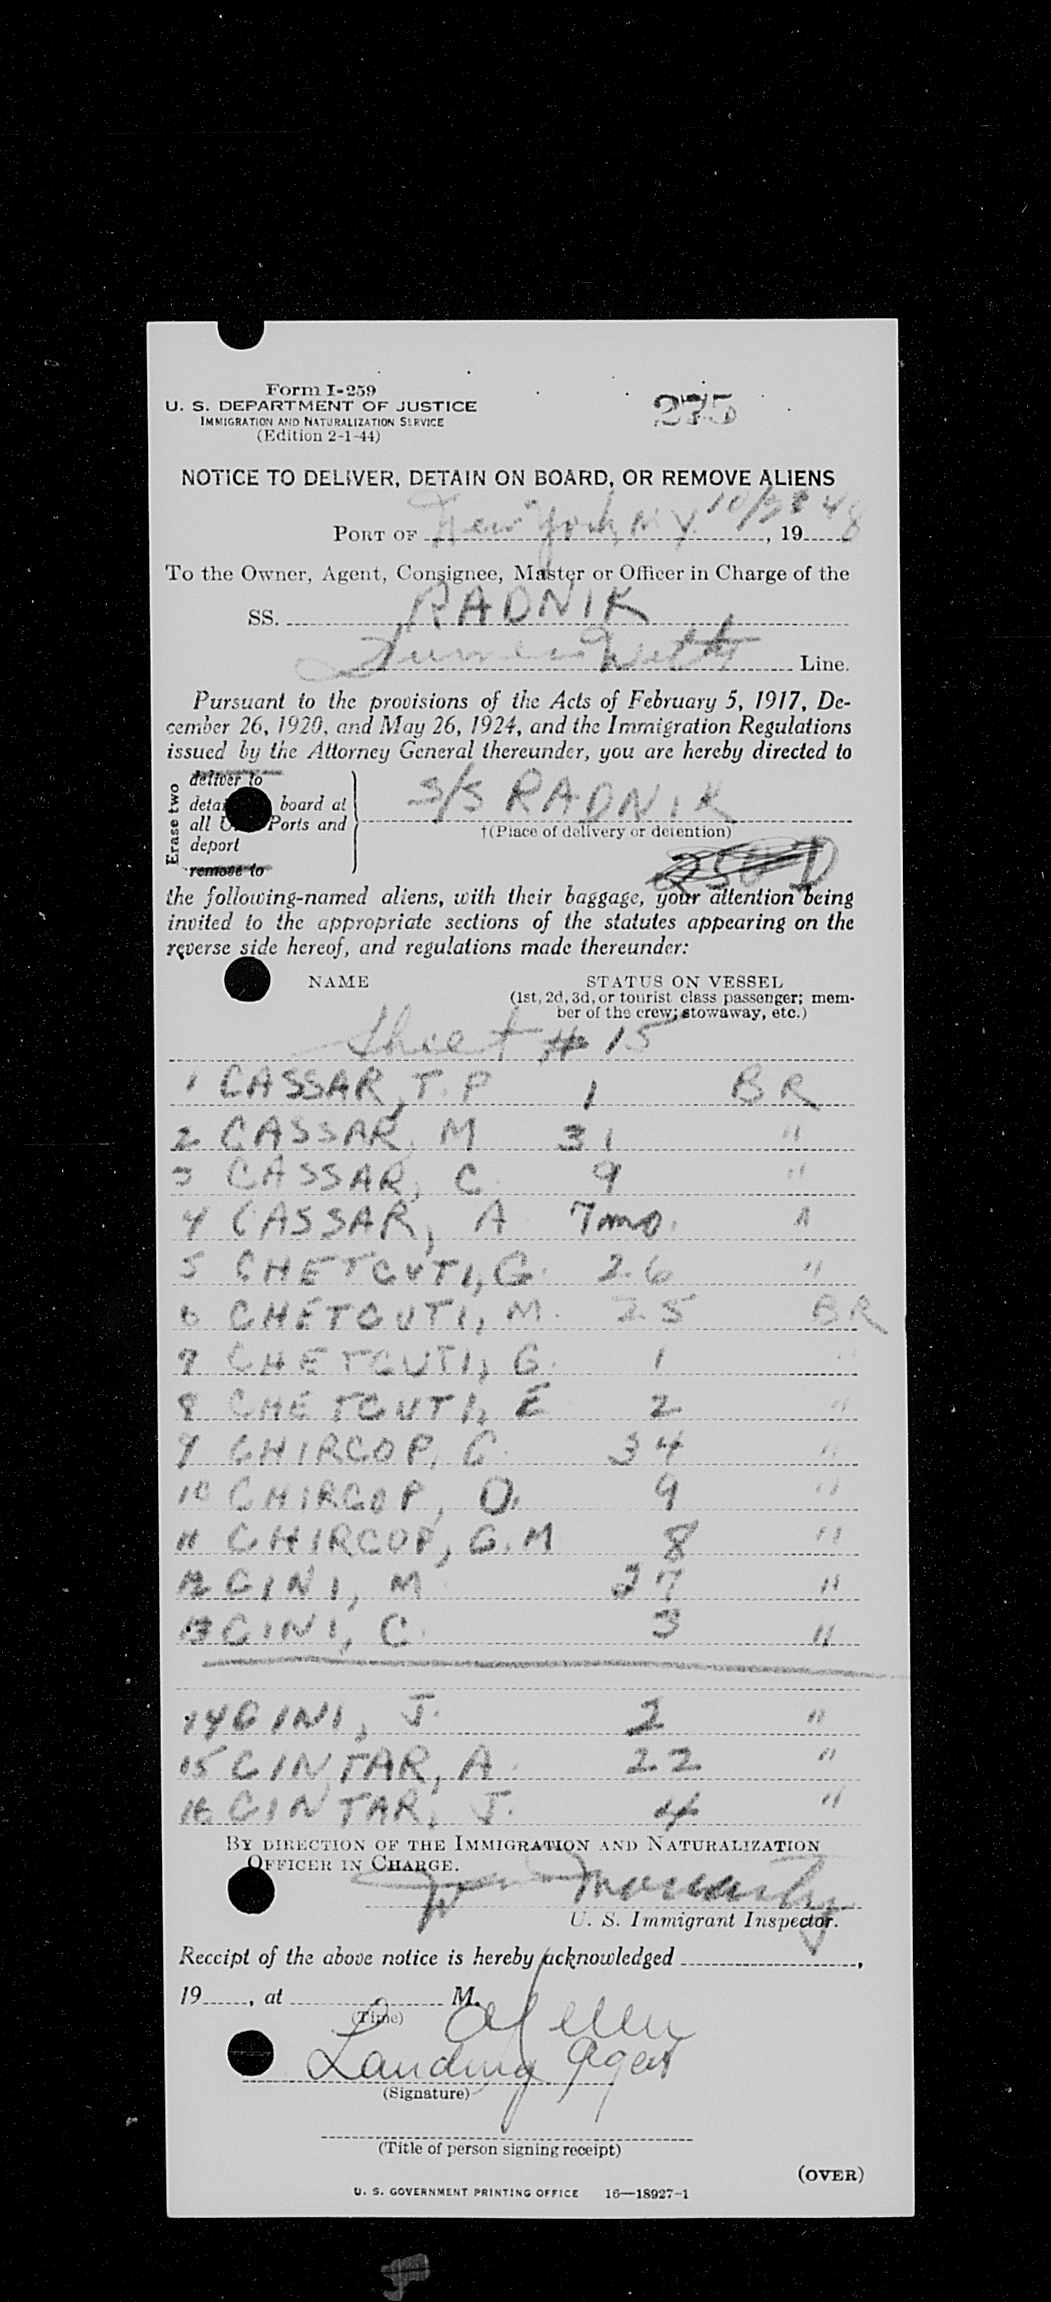 Form I-259
U. S. DEPARTMENT OF JUSTICE
IMMIGRATION AND NATURALIZATION SERVICE
(Edition 2-1-44)
275
NOTICE TO DELIVER, DETAIN ON BOARD, OR REMOVE ALIENS
PORT OF New York, N.Y. , 1948
To the Owner, Agent, Consignee, Master or Officer in Charge of the
SS. RADNIK
Line.
Pursuant to the provisions of the Acts of February 5, 1917, De-
cember 26, 1920, and May 26, 1924, and the Immigration Regulations
issued by the Attorney General thereunder, you are hereby directed to
Erase two
deliver to
board at
all Ports and
deport
remove to
S/S RADNIK
†(Place of delivery or detention)
the following-named aliens, with their baggage, your attention being
invited to the appropriate sections of the statutes appearing on the
reverse side hereof, and regulations made thereunder:
NAME STATUS ON VESSEL
(1st, 2d, 3d, or tourist class passenger; mem-
ber of the crew; stowaway, etc.)
Sheet # 15
1 CASSAR, T. P 1 BR
2 CASSAR, M 31 "
3 CASSAR, C. 9 "
4 CASSAR, A 7 mo. "
5 CHETCUTI, G. 26 "
6 CHETCUTI, M. 25 BR
7 CHETCUTI, G. 1 "
8 CHETCUTI, E 2 "
9 CHIRCOP, C. 34 "
10 CHIRCOP, O. 9 "
11 CHIRCOP, G. M 8 "
12 CINI, M 27 "
13 CINI, C. 3 "
14 CINI, J. 2 "
15 CINTAR, A. 22 "
16 CINTAR, J. 4 "
BY DIRECTION OF THE IMMIGRATION AND NATURALIZATION
OFFICER IN CHARGE.
U. S. Immigrant Inspector.
Receipt of the above notice is hereby acknowledged ,
19 , at M.
(Time)
Landing Agent
(Signature)
(Title of person signing receipt)
(OVER)
U. S. GOVERNMENT PRINTING OFFICE 16—18927-1